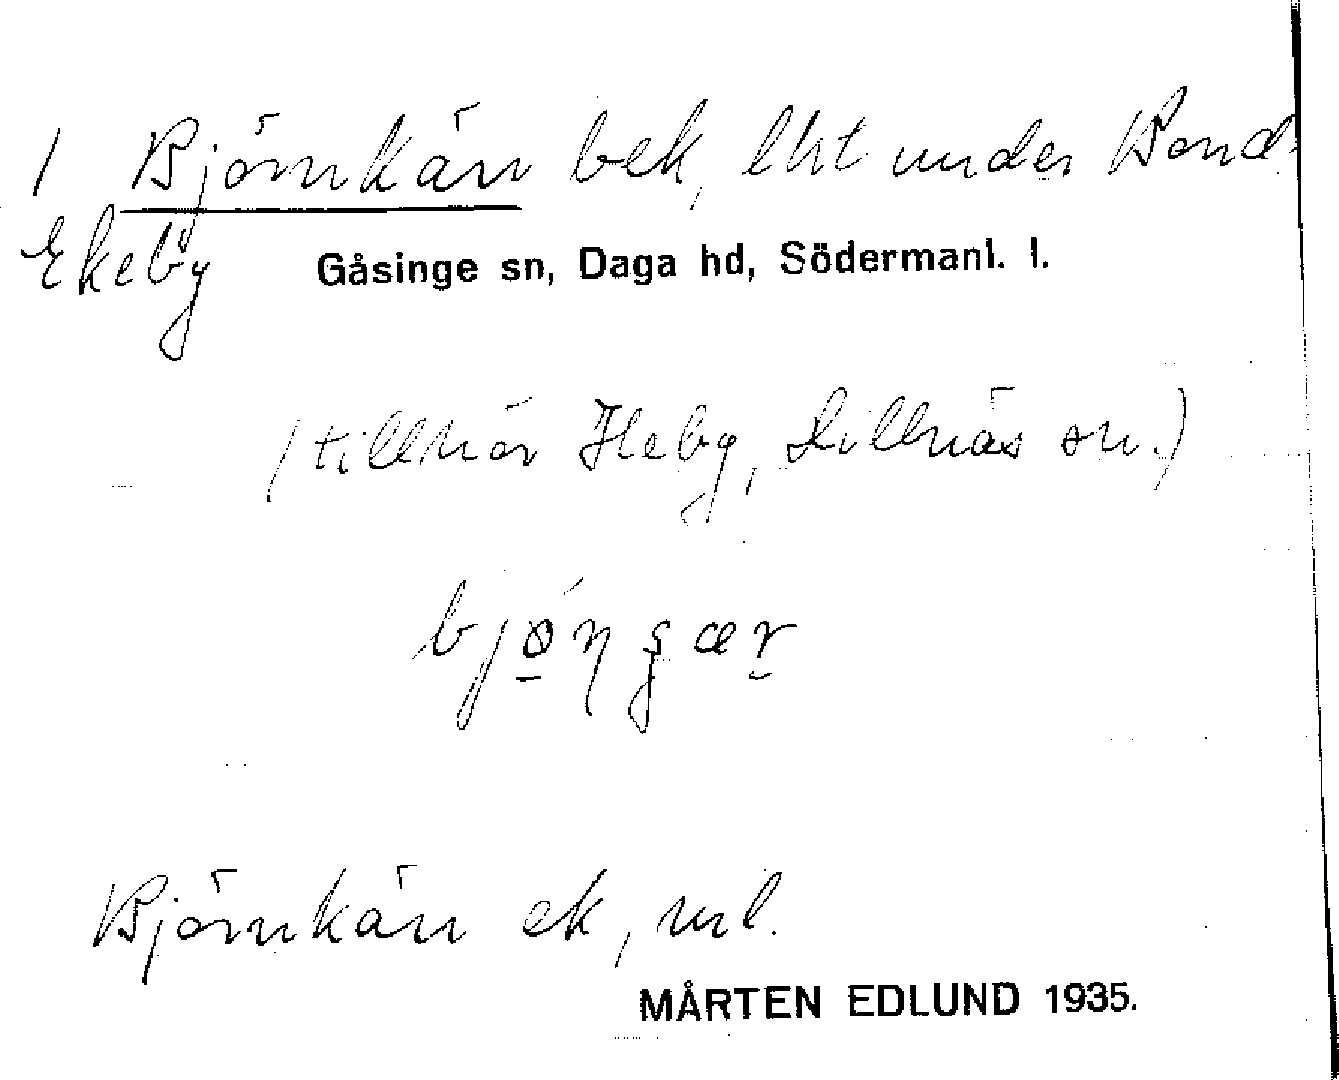 1 Björnkärr bek, lht under Bond-
Ekeby Gåsinge sn, Daga hd, Södermanl. l.
(tillhör Heby, Dillnäs sn.)
Björnkärr ek, rul.
MÅRTEN EDLUND 1935.